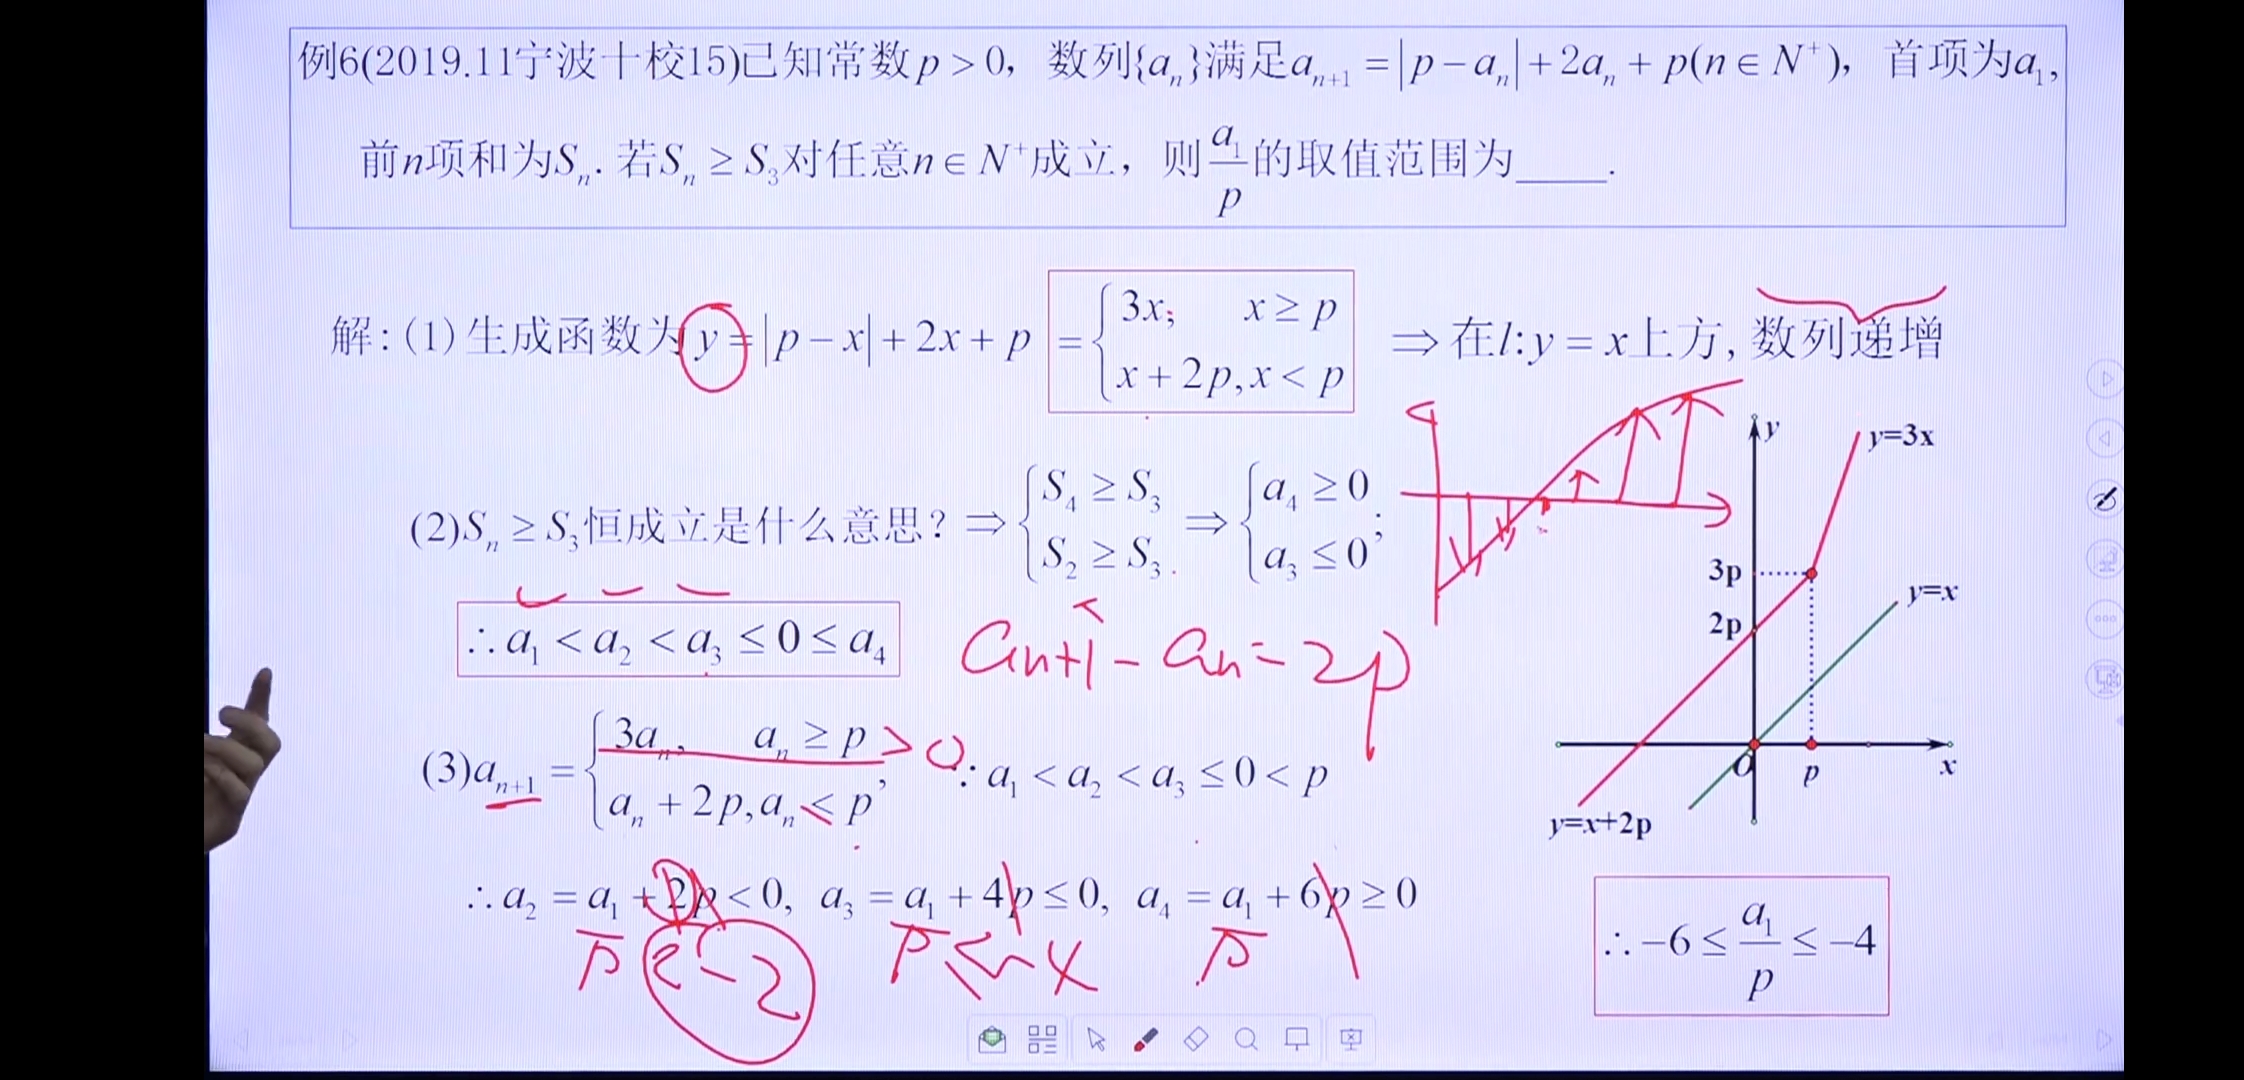 例6(2019.11宁波十校15)已知常数p > 0，数列{aₙ}满足aₙ₊₁ = |p − aₙ| + 2aₙ + p(n ∈ N⁺)，首项为a₁,
前n项和为Sₙ. 若Sₙ ≥ S₃对任意n ∈ N⁺成立，则a₁/p的取值范围为____.
解: (1) 生成函数为 y = |p − x| + 2x + p = { 3x, x ≥ p ; x + 2p, x < p ⇒ 在l: y = x上方, 数列递增
(2)Sₙ ≥ S₃恒成立是什么意思? ⇒ { S₄ ≥ S₃ ; S₂ ≥ S₃ ⇒ { a₄ ≥ 0 ; a₃ ≤ 0 ;
∴ a₁ < a₂ < a₃ ≤ 0 ≤ a₄
an+1 − an = 2p
(3)aₙ₊₁ = { 3aₙ, aₙ ≥ p ; aₙ + 2p, aₙ < p , ∵ a₁ < a₂ < a₃ ≤ 0 < p
> 0
∴ a₂ = a₁ + 2p < 0, a₃ = a₁ + 4p ≤ 0, a₄ = a₁ + 6p ≥ 0
p < −2
p ≤ −4
p
∴ −6 ≤ a₁/p ≤ −4
y
y=3x
3p
2p
y=x
O
p
x
y=x+2p